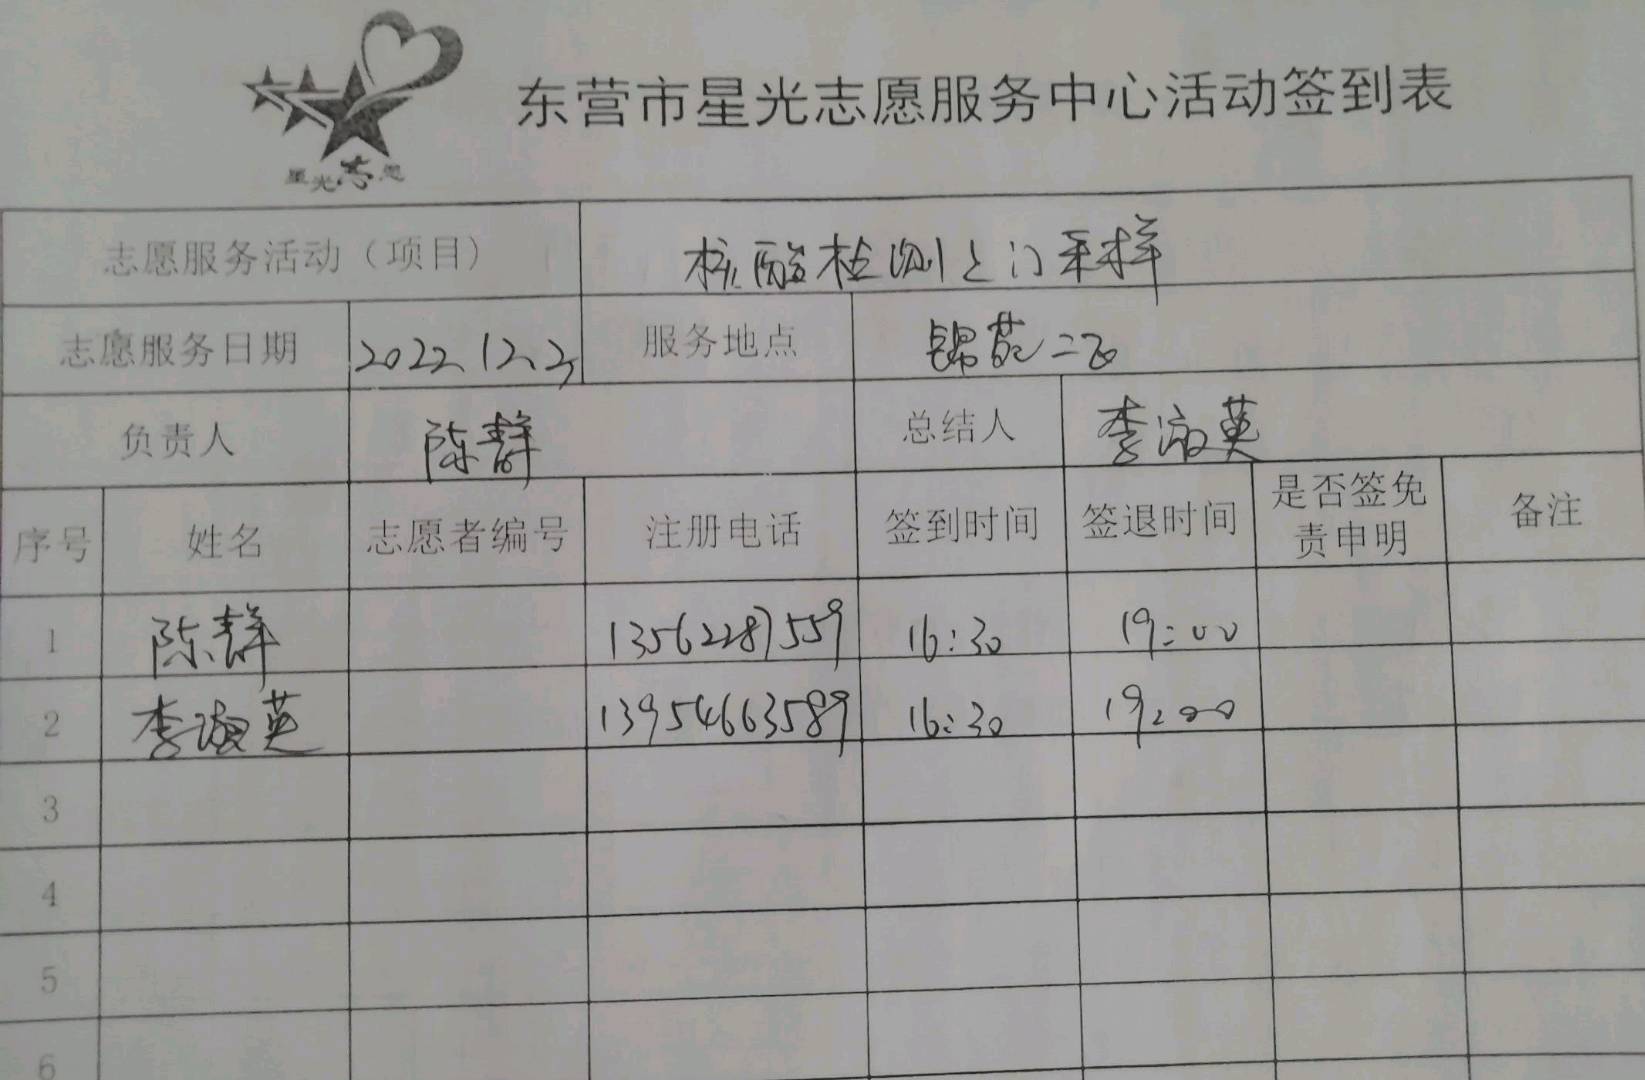 星光志愿
东营市星光志愿服务中心活动签到表
志愿服务活动（项目） 核酸检测上门采样
志愿服务日期 2022.12.2 服务地点 锦苑二区
负责人 陈静 总结人 李淑英
序号 姓名 志愿者编号 注册电话 签到时间 签退时间 是否签免责申明 备注
1 陈静 13562287559 16:30 19:00
2 李淑英 13954663589 16:30 19:00
3
4
5
6